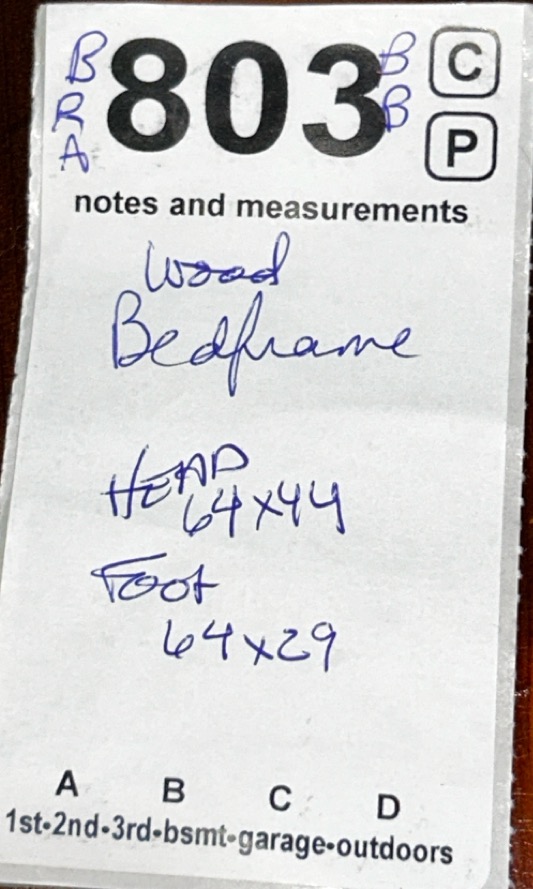 B 803 B C
R B
A P
notes and measurements
Wood
Bedframe
HEAD
64x44
Foot
64x29
A B C D
1st•2nd•3rd•bsmt•garage•outdoors